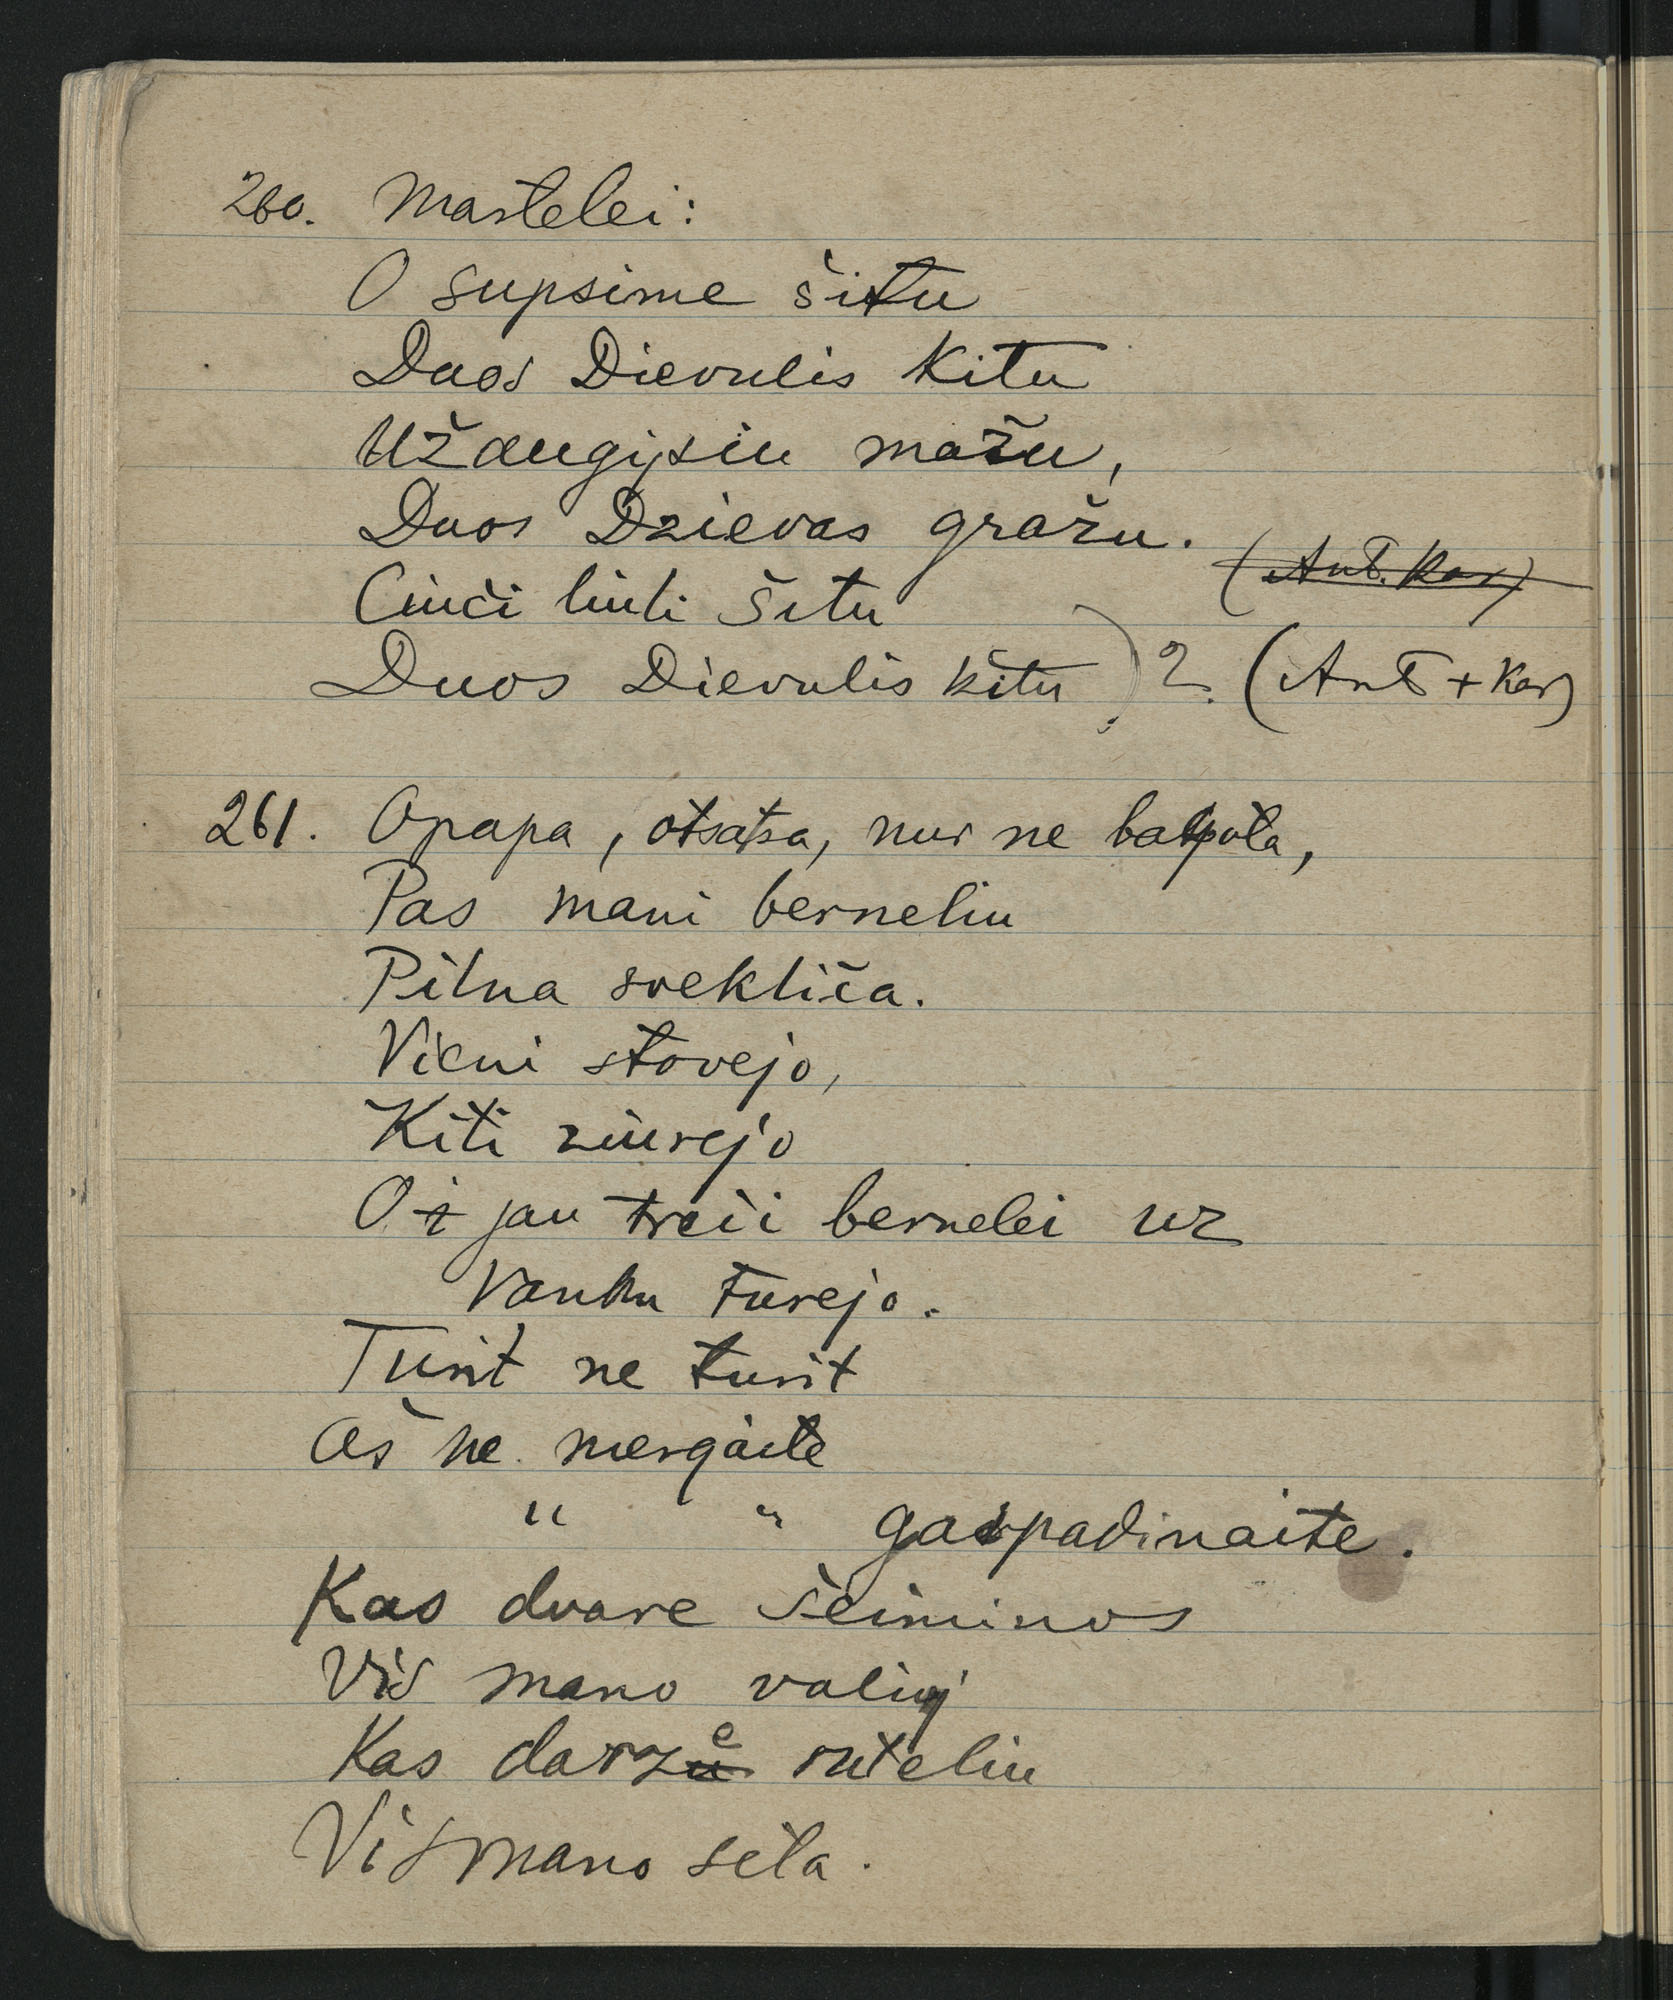 260. Martelei:
O supsime šitu
Duos Dievulis Kitu
Užaugįsiu mažu,
Duos Dzievas gražu.
(Ant. Kar)
Ciuči liuli šitu
Duos Dievulis kitu ) 2. (Ant + Kar)
261. Opapa, otsatsa, nur ne balpota,
Pas mani berneliu
Pilna svekliča.
Vieni stovejo,
Kiti ziurejo
Oi jau treči bernelei uz
Vanku turejo.
Turit ne turit
Aš ne mergaite
" " gaspadinaite.
Kas dvare šeiminos
Vis mano valioj
Kas darze ruteliu
Vis mano sėta.